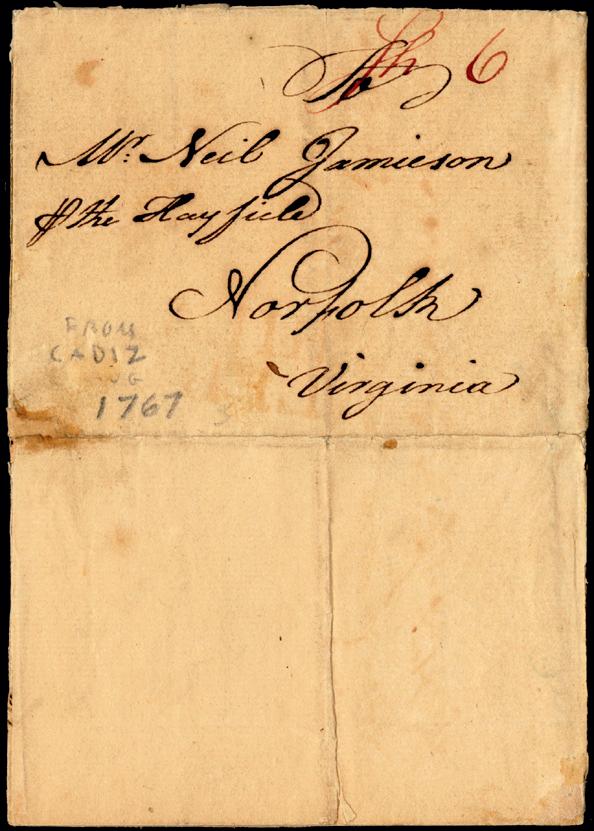 To Sh 6
Mr. Neil Jamieson
⅌ the Hayfield
Norfolk
Virginia
FROM
CADIZ
1767